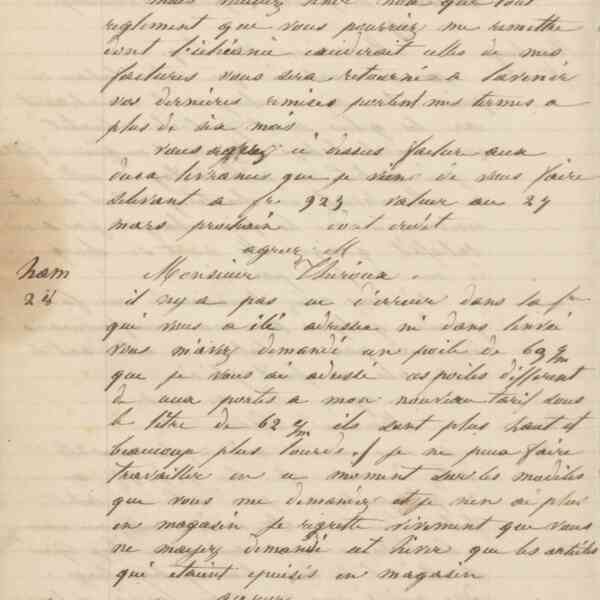 mais veuillez noter que tout
reglement que vous pourriez me remettre
dont l'échéance excéderait celles de mes
factures vous sera retourné a l'avenir
vos dernières remises portent mes termes a
plus de six mois
vous agréez ci dessus facture aux
deux livraisons que je viens de vous faire
s'élevant a fr 923 valeur au 27
mars prochain dont crédit
agréez M
ham
28
Monsieur Thiroux.
il n'y a pas eu d'erreur dans la fre
qui vous a été adressée ni dans l'envoi
vous m'avez demandé un poële de 62 c/m
que je vous ai adressé ces poëles différent
de ceux portés a mon nouveau tarif sous
le titre de 62 c/m ils sont plus haut et
beaucoup plus lourds. je ne puis faire
travailler en ce moment sur les modèles
que vous me demandez et je n'en ai plus
en magasin je regrette vivement que vous
ne m'ayez demandé cet hiver que les articles
qui étaient épuisés en magasin